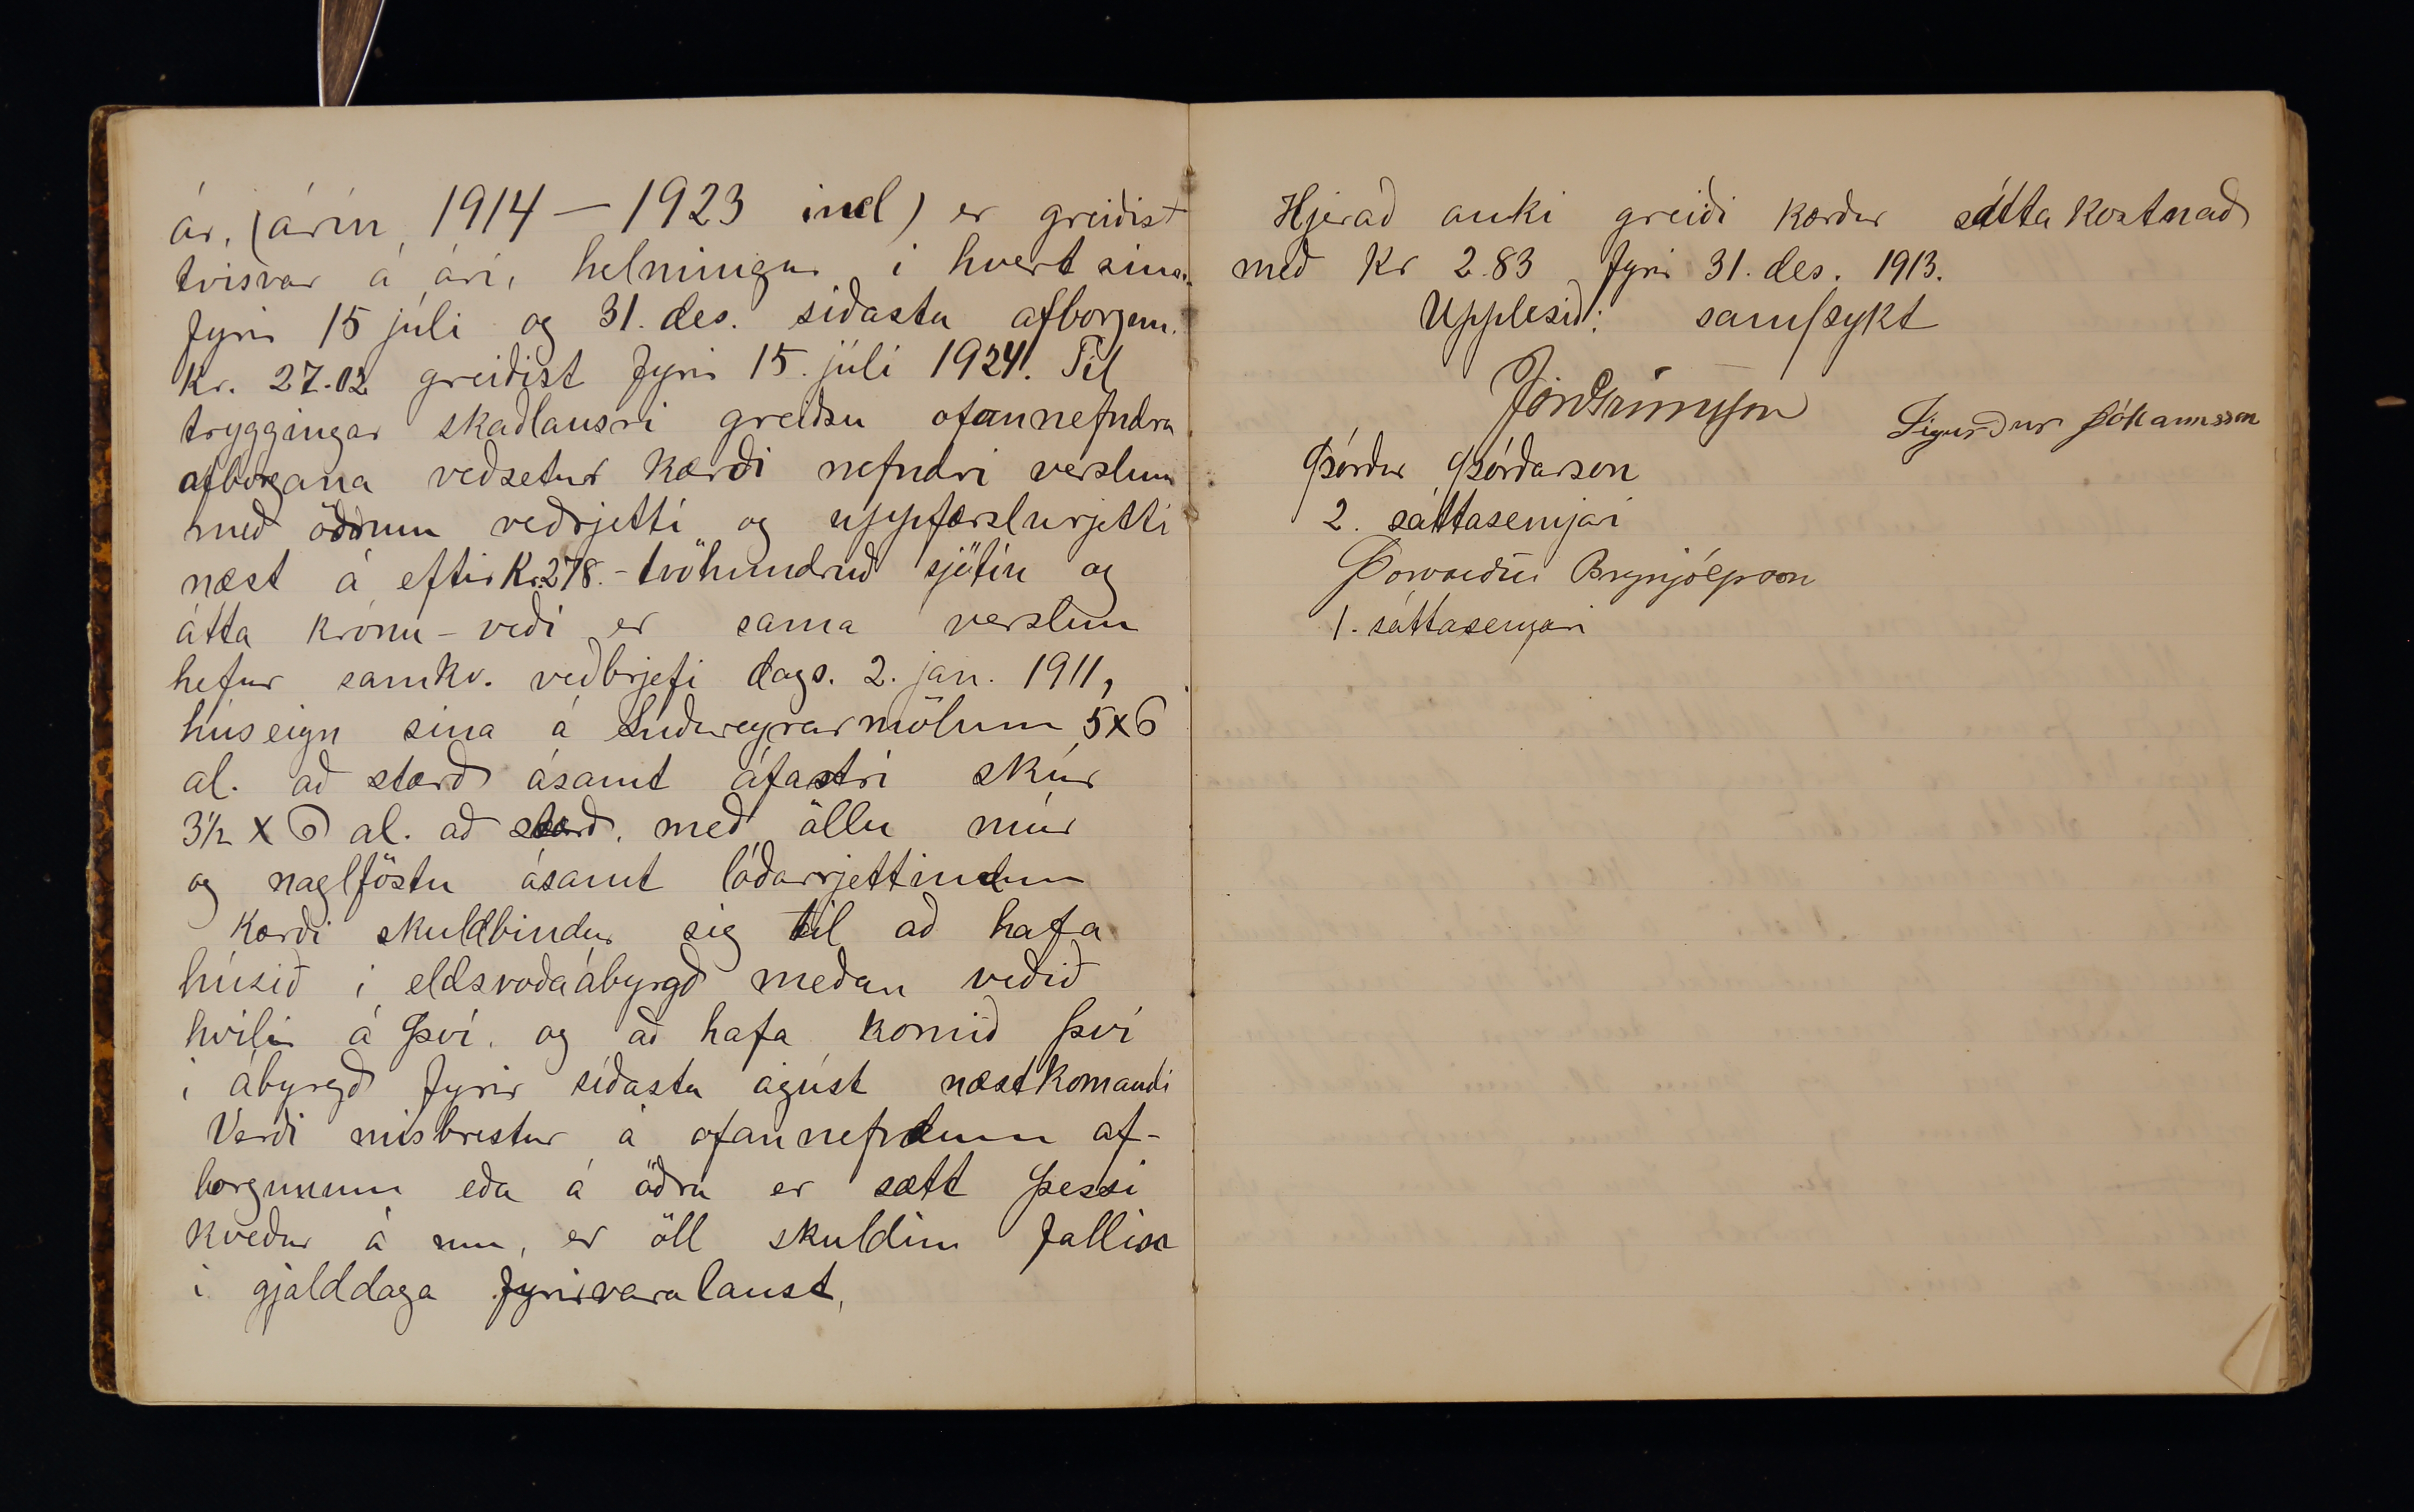 ár, (árin 1914 — 1923 incl) er greiðist
tvisvar á ári, helmingur í hvert sinn
fyrir 15 júli og 31. des. síðasta afborgun.
Kr. 27.02 greiðist fyrir 15. júlí 1924. Til
tryggingar skaðlausri greiðsu ofannefndra
afborgana veðsetur kærði nefndri verslun
með öðrum veðrjetti og uppfærslurjetti
næst á eftir Kr 278.- tvöhundruð sjötíu og
átta krónu - veði er sama verslun
hefur samkv. veðbrjefi dags. 2. jan. 1911,
húseign sína á Suðureyrarmölum 5x6
al. að stærð ásamt áfastri skúr
3½ x 6 al. að stærð, með öllu múr
og naglföstu ásamt lóðarrjettindum
Kærði skuldbindur sig til að hafa
húsið í eldsvoðaábyrgð meðan veðið
hvílir á því, og að hafa komið því
í ábyrgð fyrir síðasta ágúst næstkomandi
Verði misbrestur á ofannefndum af-
borgunum eða á öðru er sætt þessi
kveður á um, er öll skuldin fallin
í gjalddaga fyrirvaralaust.
Hjerað auki greiði kærður sátta kostnað
með Kr 2.83 fyrir 31. des. 1913.
Upplesið: samþykt
Jón Grímsson
Sigurður Jóhannsson
Þórður Þórðarson
2. sáttasemjari
Þorvarður Brynjólfsson
1. sáttasemjari